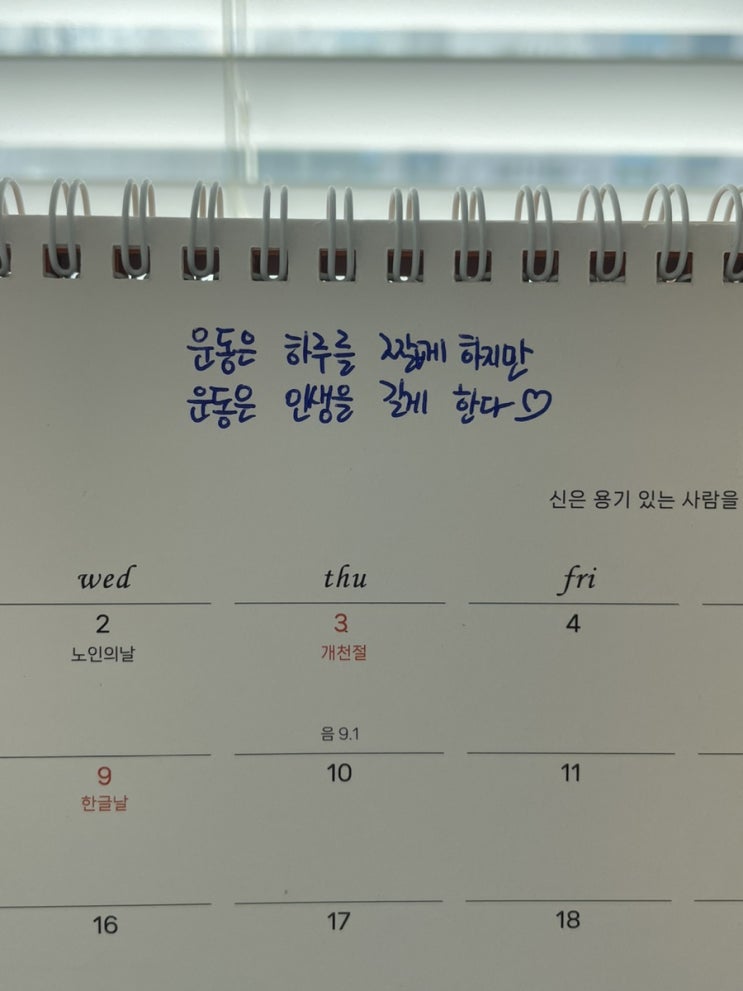 운동은 하루를 짧게 하지만
운동은 인생을 길게 한다♡
신은 용기 있는 사람을
wed thu fri
2 3 4
노인의날 개천절
음 9.1
9 10 11
한글날
16 17 18